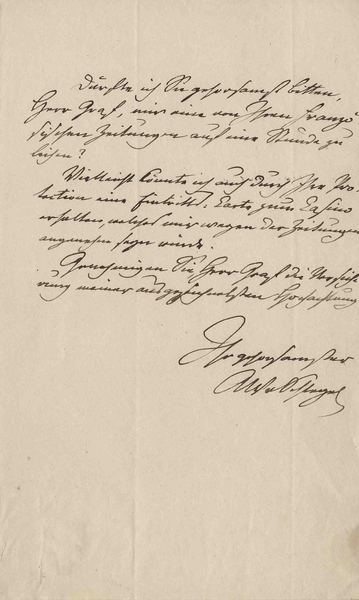 Dürfte ich Sie gehorsamst bitten,
Herr Graf, mir eine von Ihren Franzö-
sischen Zeitungen auf eine Stunde zu
leihen?
Vielleicht könnte ich auch durch Ihre Pro-
tection eine Eintritts-Karte zum Casino
erhalten, welches mir wegen der Zeitungen
angenehm seyn würde.
Genehmigen Sie Herr Graf die Versiche-
rung meiner ausgezeichnetsten Hochachtung
Ihr gehorsamster
AWvSchlegel